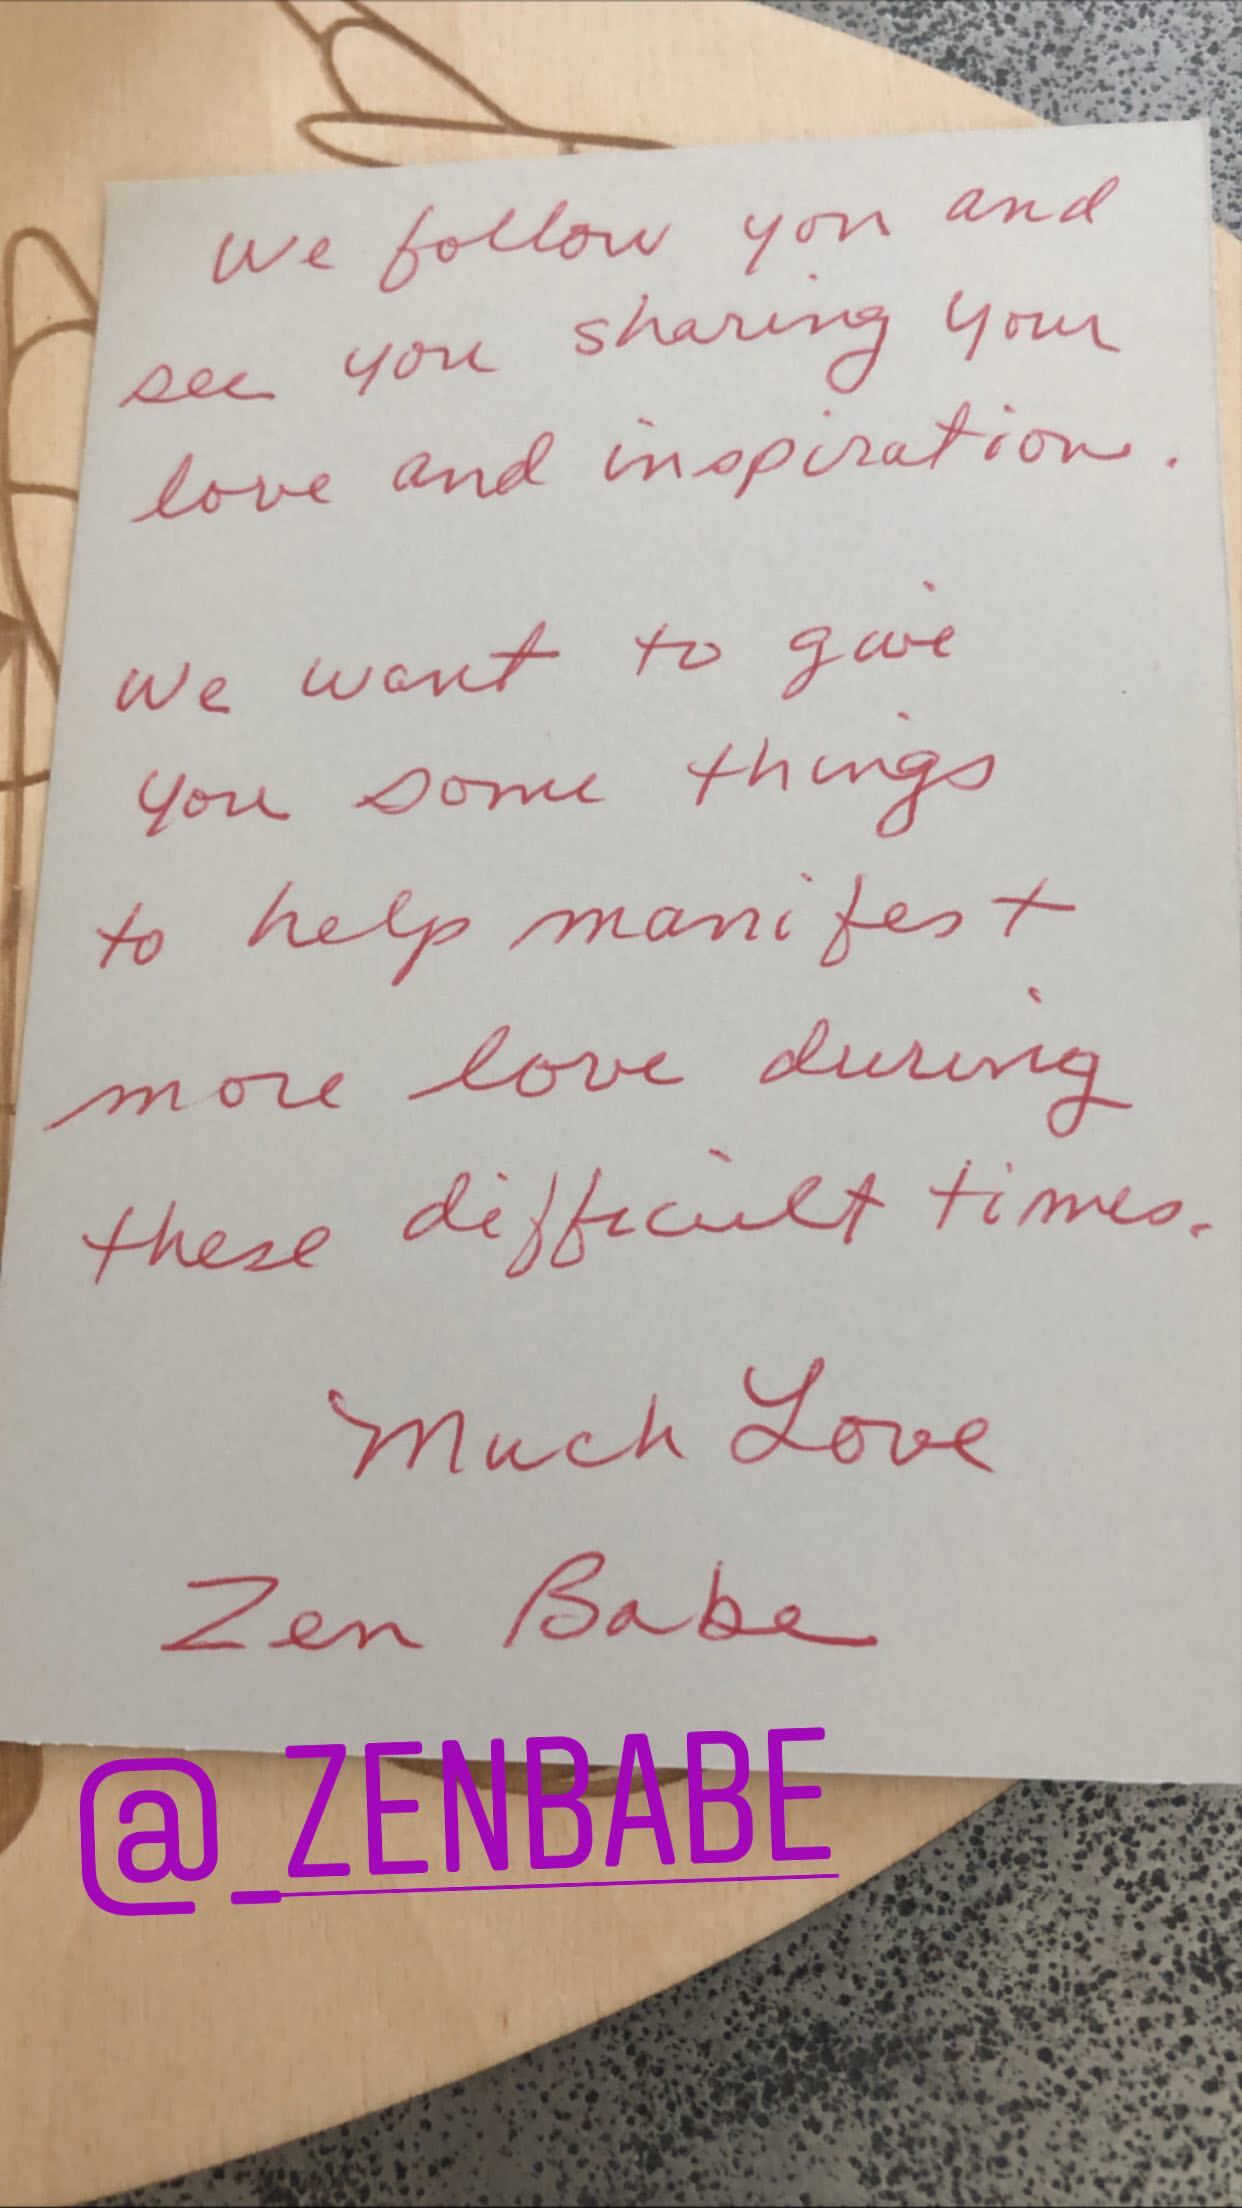 We follow you and
see you sharing your
love and inspiration.
We want to give
you some things
to help manifest
more love during
these difficult times.
Much Love
Zen Babe
@_ZENBABE